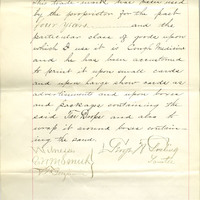 This trade mark has been used
by the proprietor for the past
four years and the
particular class of goods upon
which I use it is Cough Medicine
and he has been accustomed
to print it upon small cards
and upon large show cards as
advertisements and upon boxes
and packages containing the
said and also to
wrap it around boxes contain-
ing the same.